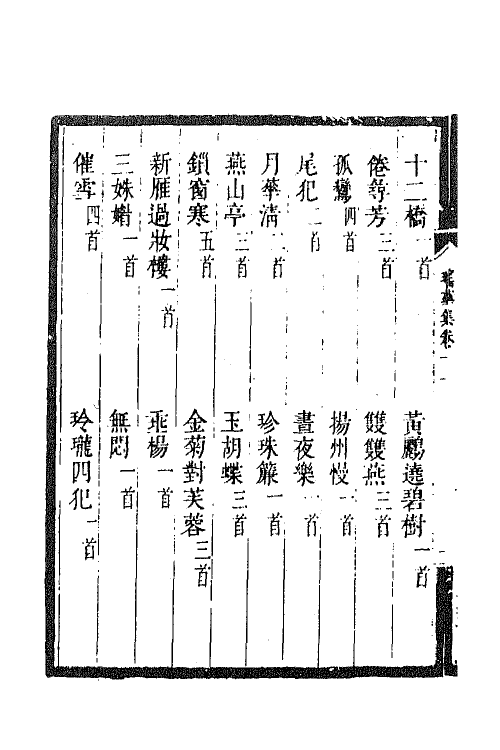 十二橋一首　黃鸝遶碧樹一首
倦尋芳三首　雙雙燕三首
孤鸞四首　揚州慢一首
尾犯二首　晝夜樂一首
月華清二首　珍珠簾一首
燕山亭三首　玉胡蝶三首
鎖窗寒五首　金菊對芙蓉三首
新雁過妝樓一首　乖楊一首
三姝媚一首　無悶一首
催雪四首　玲瓏四犯一首
瑤華集卷